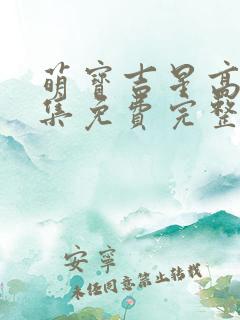 萌寶吉星高
集免費完整
安寧
未经同意禁止转载